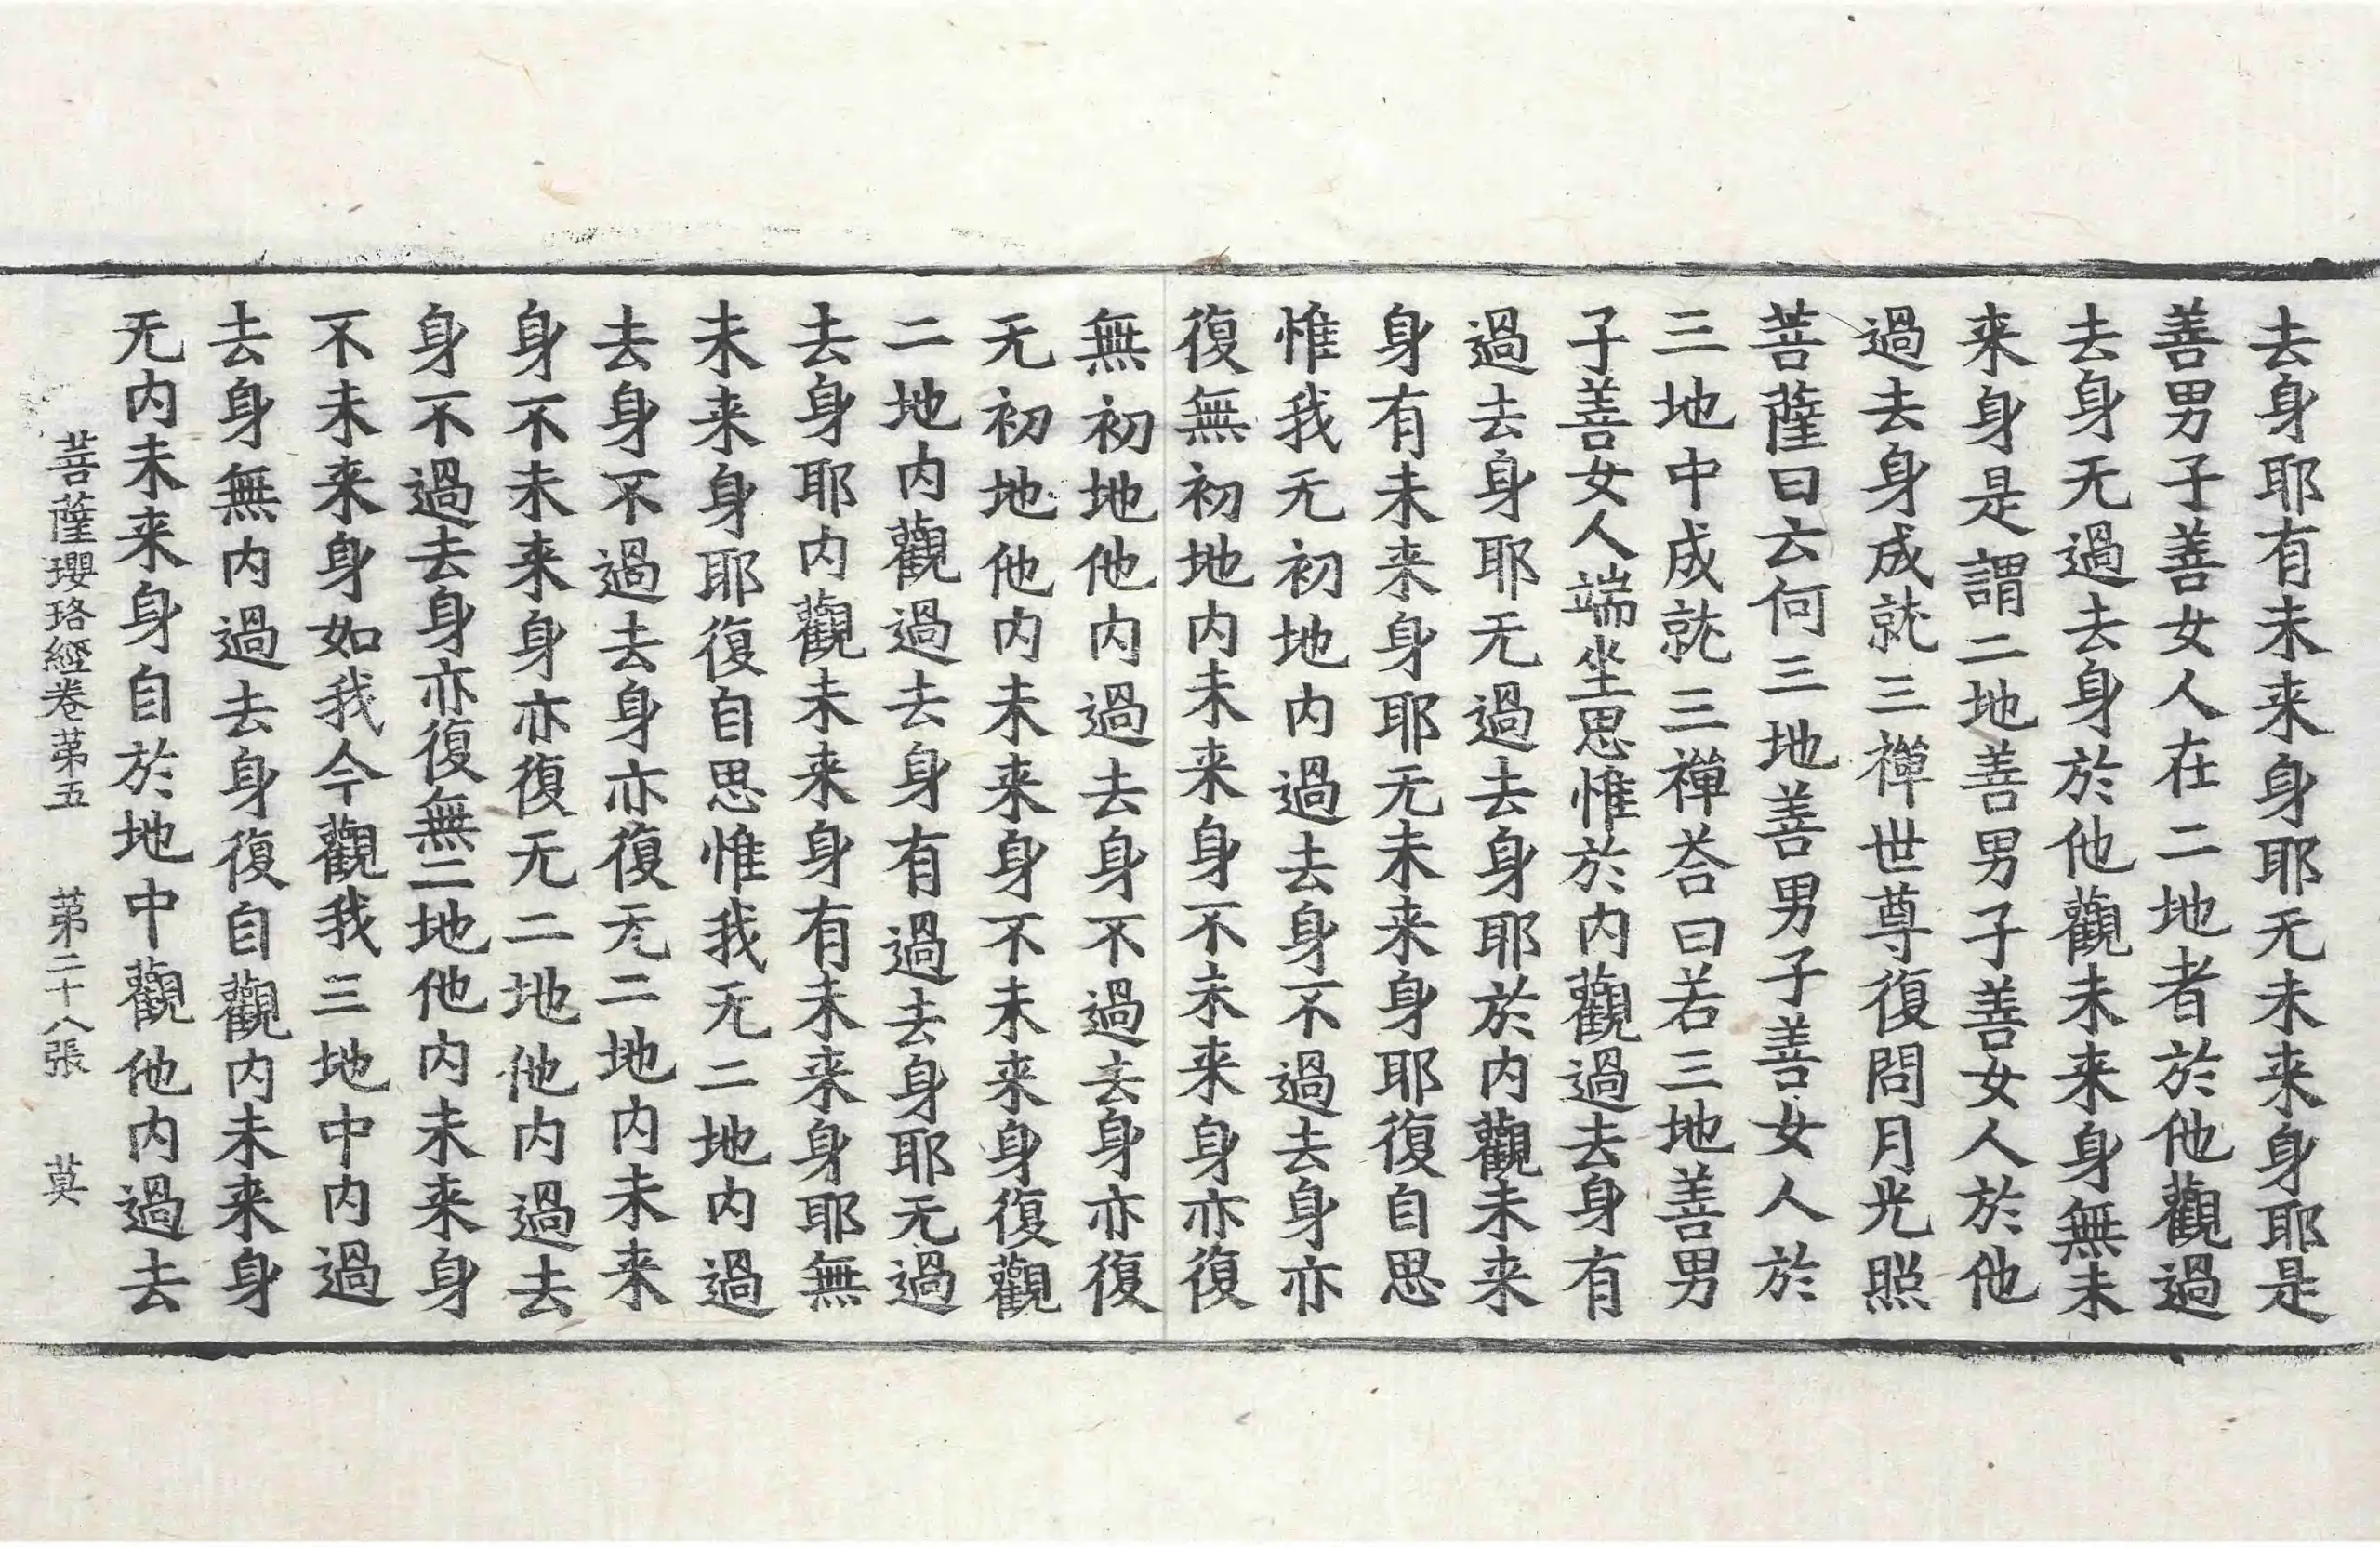 去身耶有未来身耶无未来身耶是
善男子善女人在二地者於他觀過
去身无過去身於他觀未来身無未
来身是謂二地善男子善女人於他
過去身成就三禪世尊復問月光照
菩薩曰云何三地善男子善女人於
三地中成就三禪荅曰若三地善男
子善女人端坐思惟於内觀過去身有
過去身耶无過去身耶於内觀未来
身有未来身耶无未来身耶復自思
惟我无初地内過去身不過去身亦
復無初地内未来身不未来身亦復
無初地他内過去身不過去身亦復
无初地他内未来身不未来身復觀
二地内觀過去身有過去身耶无過
去身耶内觀未来身有未来身耶無
未来身耶復自思惟我无二地内過
去身不過去身亦復无二地内未来
身不未来身亦復无二地他内過去
身不過去身亦復無二地他内未来身
不未来身如我今觀我三地中内過
去身無内過去身復自觀内未来身
无内未来身自於地中觀他内過去
菩薩瓔珞經卷苐五 苐二十八張 莫